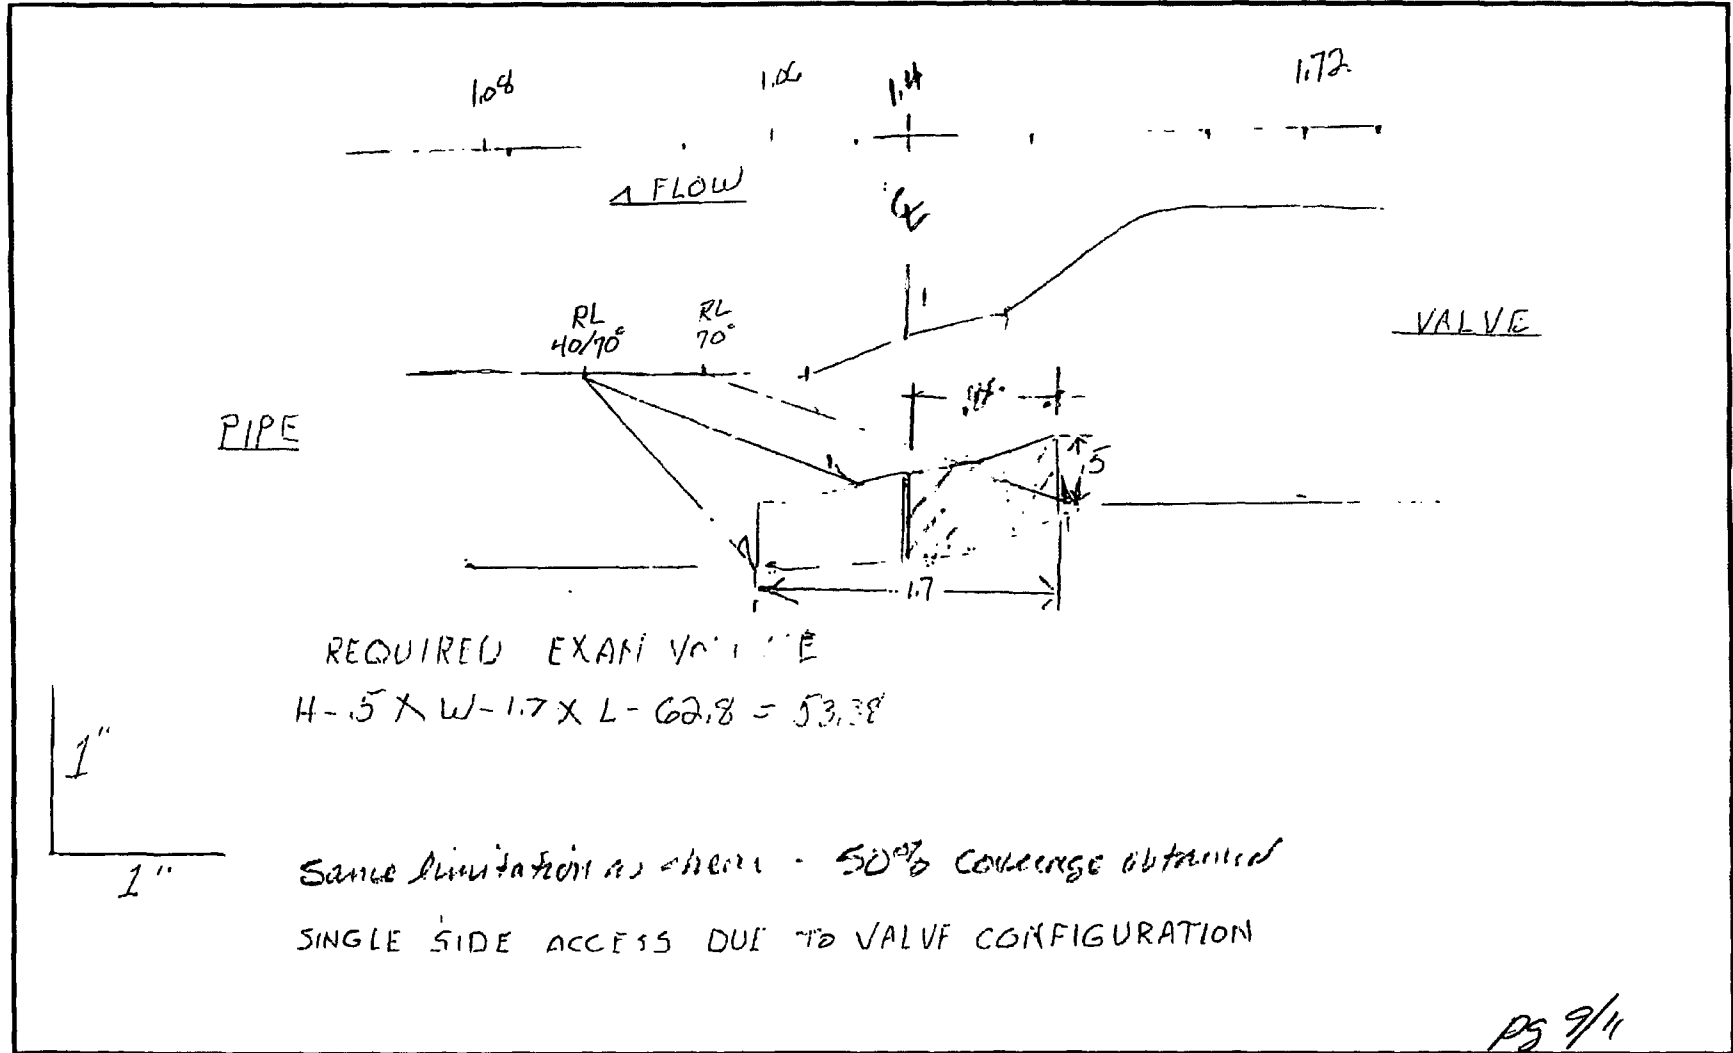 1.08 1.06 1.4 1.72
FLOW
℄
RL
40/70°
RL
70°
VALVE
PIPE
.5
1.7
REQUIRED EXAM
H-.5 X W-1.7 X L-62.8 = 53.38
1"
1"
Same limitation as 50% coverage obtained
SINGLE SIDE ACCESS DUE TO VALVE CONFIGURATION
pg 9/11